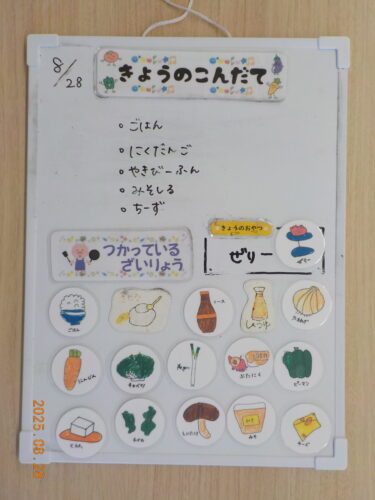 8/28
きょうのこんだて
ごはん
にくだんご
やきびーふん
みそしる
ちーず
きょうのおやつ
ぜりー
つかっている
ざいりょう
ごはん
ソース
しょうゆ
たまねぎ
にんじん
キャベツ
ねぎ
ぶたにく
ピーマン
とうふ
わかめ
しいたけ
みそ
チーズ
2025.08.28